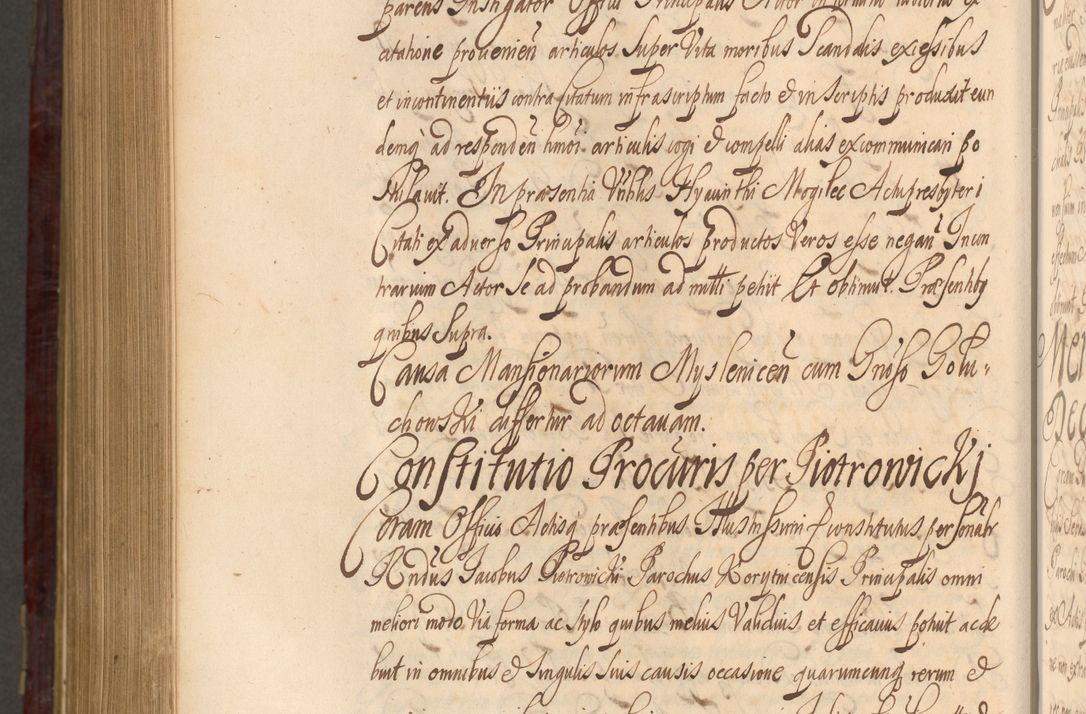 parens Instigator Officii Principalis Actor in termino
citatione provenien̄ articulos super Vita moribus Scandalis excessibus
et incontinentiis contra Citatum infrascriptum facto et in scriptis produxit eun
demq̃ ad responden̄ hmōi articulis cogi et compelli alias excommunicari po
stulavit. In præsentia Vrblis Hyacinthi Mogilec Archipresbyteri
Citati ex adverso Principalis articulos productos Veros esse negan̄ In con
trarium Actor se ad probandum admitti petiit Et obtinuit. Præsentibꝫ
quibus supra.
Causa Mansionariorum Myslenicen̄ cum Gnōso Golu-
chowski differtur ad octavam.
Constitutio Procuris per Piotrowickj
Coram Officio Actisq̃ præsentibus Illustrissimi constitutus personalr
Rndus Jacobus Piotrowicki Parochus Korytnicensis Principalis omni
meliori modo Via forma ac stylo quibus melius Validius et efficacius potuit ac de
buit in omnibus et singulis suis causis occasione quarumcunq̃ rerum et